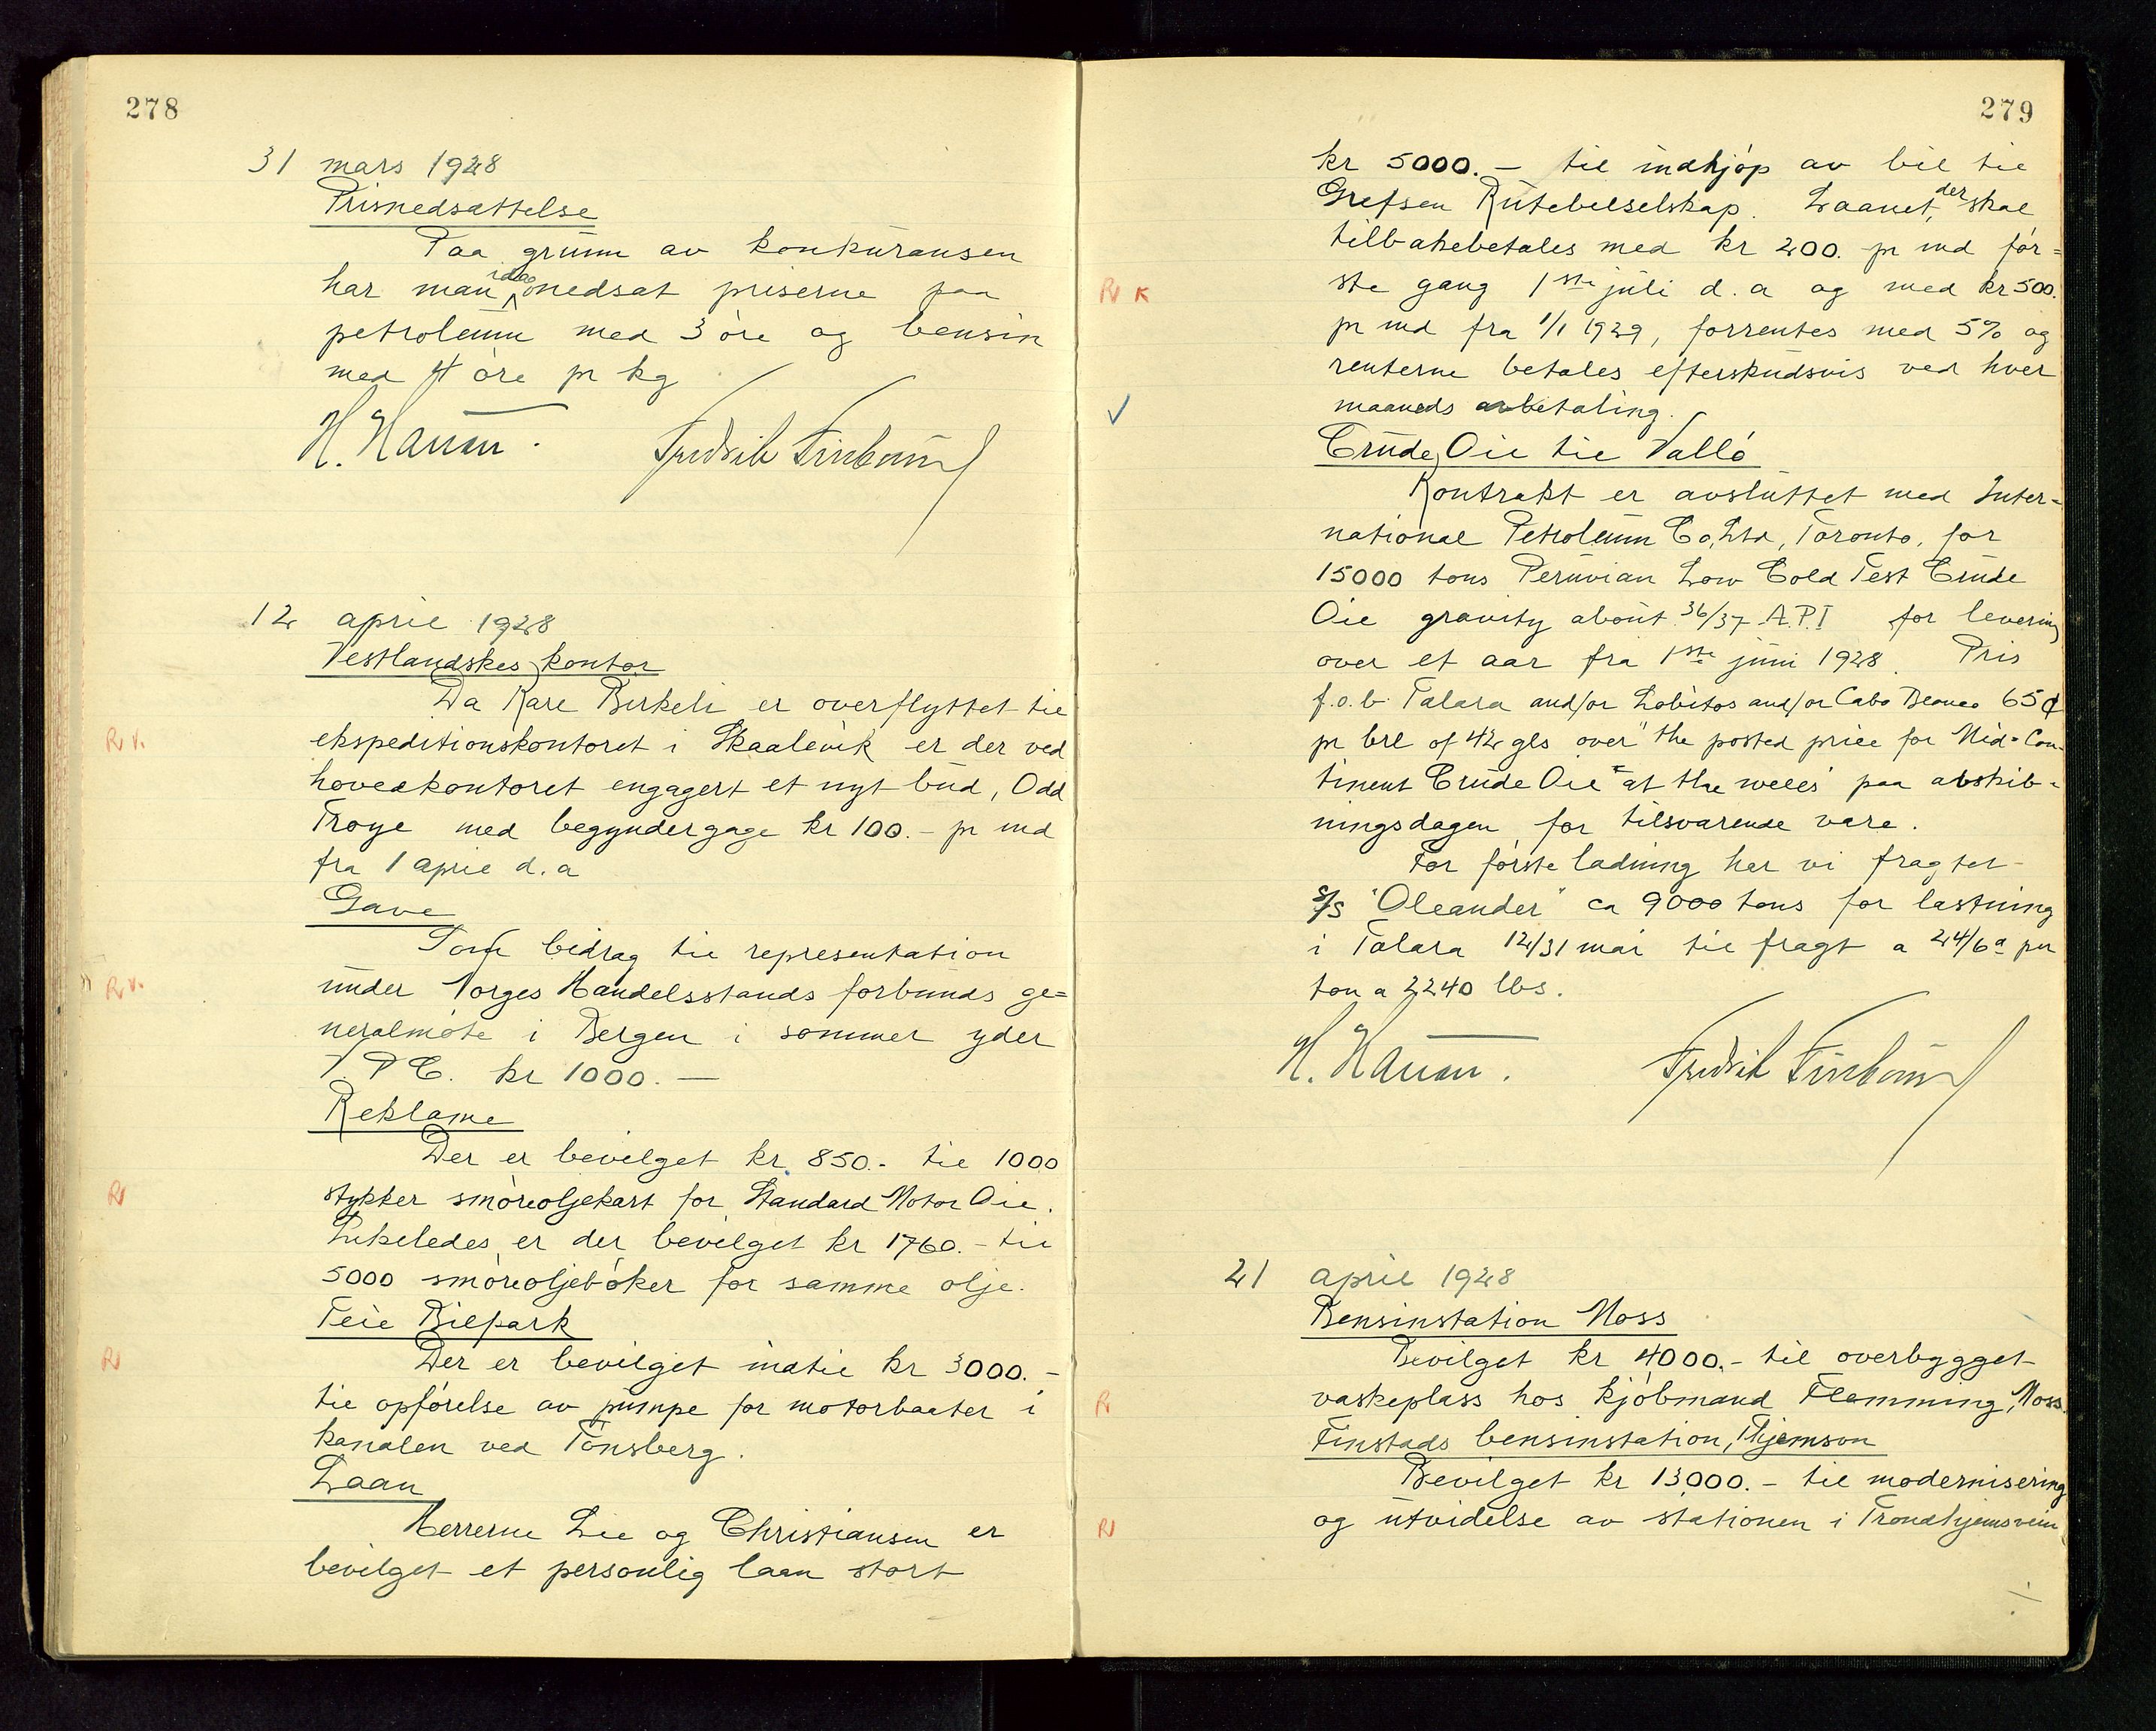 278
31 mars 1928
Prisnedsættelse
Paa grunn av konkuransen
har man idag nedsat priserne paa
petroleum med 3 øre og bensin
med 4 øre pr kg
H. Hansen. Fredrik
12 april 1928
Vestlandskes kontor
Da Kare Birkeli er overflyttet til
R. V.
ekspeditionskontoret i Skaalevik er der ved
hovedkontoret engagert et nyt bud, Odd
Troye med begyndergage kr 100.- pr md
fra 1 april d. a
Gave
Som bidrag til representation
R. V.
under Norges Handelsstands forbunds ge=
neralmøte i Bergen i sommer yder
V. P C. kr 1000.—
Reklame
Der er bevilget kr 850.- til 1000
R
stykker smøreoljekart for Standard Motor Oil.
Likeledes er der bevilget kr 1760.- til
5000 smøreoljebøker for samme olje.
Teie Bilpark
R
Der er bevilget indtil kr 3000.-
til opførelse av pumpe for motorbaater i
kanalen ved Tønsberg.
Laan
Herrerne Lie og Christiansen er
bevilget et personlig laan stort
279
kr 5000.- til indkjøp av bil til
Grefsen Rutebilselskap. Laanet, der skal
tilbakebetales med kr 200.- pr md før=
R K
ste gang 1ste juli d. a og med kr 500.
pr md fra 1/1 1929, forrentes med 5% og
renterne betales efterskudsvis ved hver
maaneds avbetaling.
Crude Oil til Vallø
Kontrakt er avsluttet med Inter=
national Petroleum Co, Ltd, Toronto, for
15000 tons Peruvian Low Cold Test Crude
Oil gravity about 36/37 A.P.I for levering
over et aar fra 1ste juni 1928. Pris
f.o.b. Talara and/or Lobitos and/or Cabo Blanco 65¢
pr brl of 42 gls over "the posted price for Mid-Con-
tinent Crude Oil" at the wells' paa avskib=
ningsdagen for tilsvarende vare.
For første ladning har vi fragtet
S/S "Oleander" ca 9000 tons for lastning
i Talara 12/31 mai til fragt a 24/6d per
ton a 2240 lbs.
H. Hansen. Fredrik
21 april 1928
Bensinstation Moss
Bevilget kr 4000.- til overbygget
R
vaskeplass hos kjøbmand Flemming, Moss.
Finstads bensinstation, Thjemson
Bevilget kr 13000.- til modernisering
R
og utvidelse av stationen i Trondhjemsveien